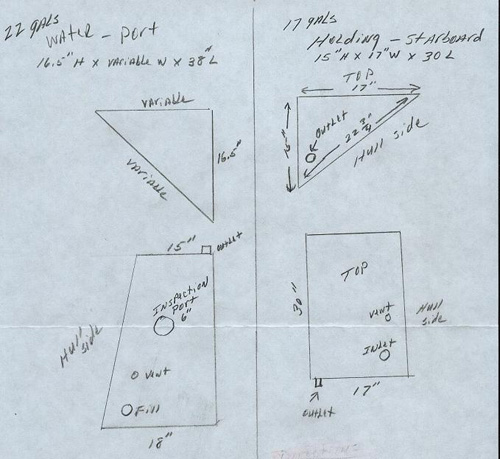 22 gals
Water - Port
16.5" H x variable W x 38" L
variable
variable
16.5"
15"
outlet
Inspection
Port
6"
Hull
side
vent
Fill
18"
17 gals
Holding - Starboard
15" H x 17" W x 30 L
TOP
17"
15"
outlet
22 3/4
Hull side
TOP
30"
vent
Hull
side
Inlet
outlet
17"